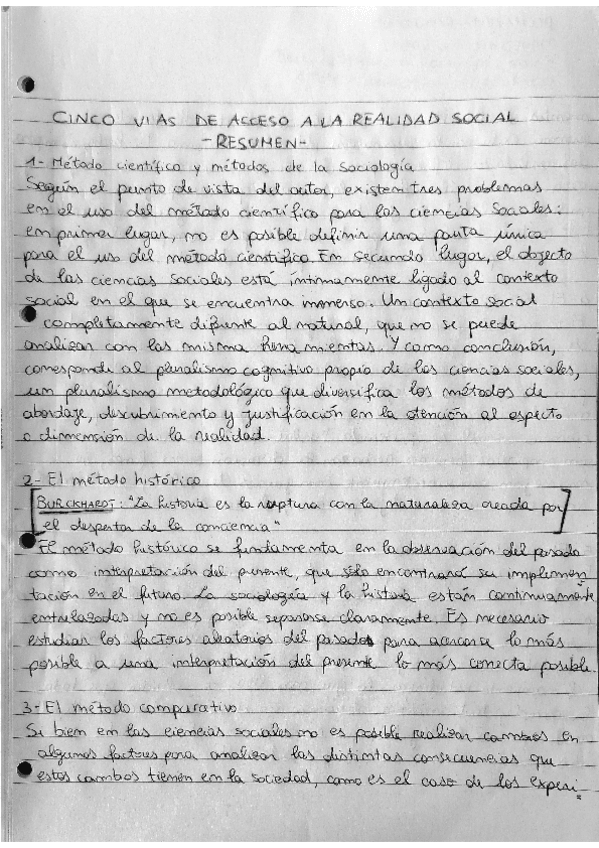 CINCO VIAS DE ACCESO A LA REALIDAD SOCIAL
-RESUMEN-
1- Método científico y métodos de la Sociología
Según el punto de vista del autor, existen tres problemas
en el uso del método científico para las ciencias Sociales:
en primer lugar, no es posible definir una pauta única
para el uso del método científico. En secundo lugar, el objecto
de las ciencias sociales está íntimamente ligado al contexto
social en el que se encuentra inmenso. Un contexto social
completamente difirente al natural, que no se puede
analizar con las misma herramientas. Y como conclusión,
corresponde al pluralismo cognitivo propio de las ciencias sociales,
un pluralismo metodológico que diversifica los métodos de
abordaje, descubrimiento y justificación en la atención al aspecto
o dimensión de la realidad.
2- El método histórico
BURCKHARDT: "La historia es la ruptura con la naturaleza creada por
el despertar de la conciencia"
El método histórico se fundamenta en la observación del pasado
como interpretación del presente, que sólo encontrará su implemen
tación en el futuro. La sociología y la historia están continuamente
entrelazadas y no es posible separarse claramente. Es necesario
estudiar los factores aleatorios del pasados para acercarse lo más
posible a una interpretación del presente lo más correcta posible.
3- El método comparativo
Si bien en las ciencias sociales no es posible realizar cambios en
algunos factores para analizar las distintas consecuencias que
estos cambos tienen en la sociedad, como es el caso de los experi